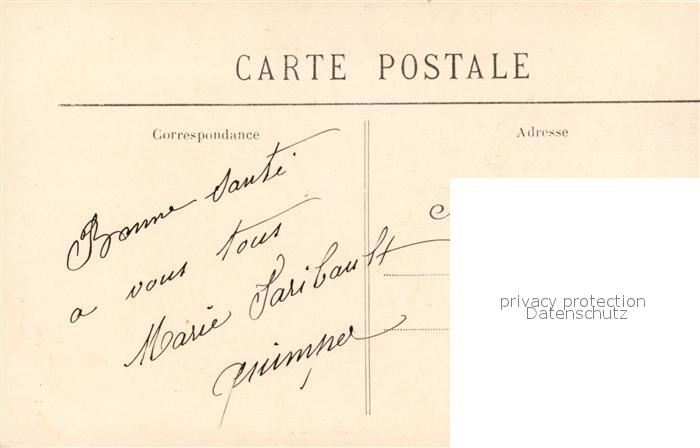 CARTE POSTALE
Correspondance
Adresse
Bonne santé
a vous tous
Marie Saribault
Quimper
privacy protection
Datenschutz